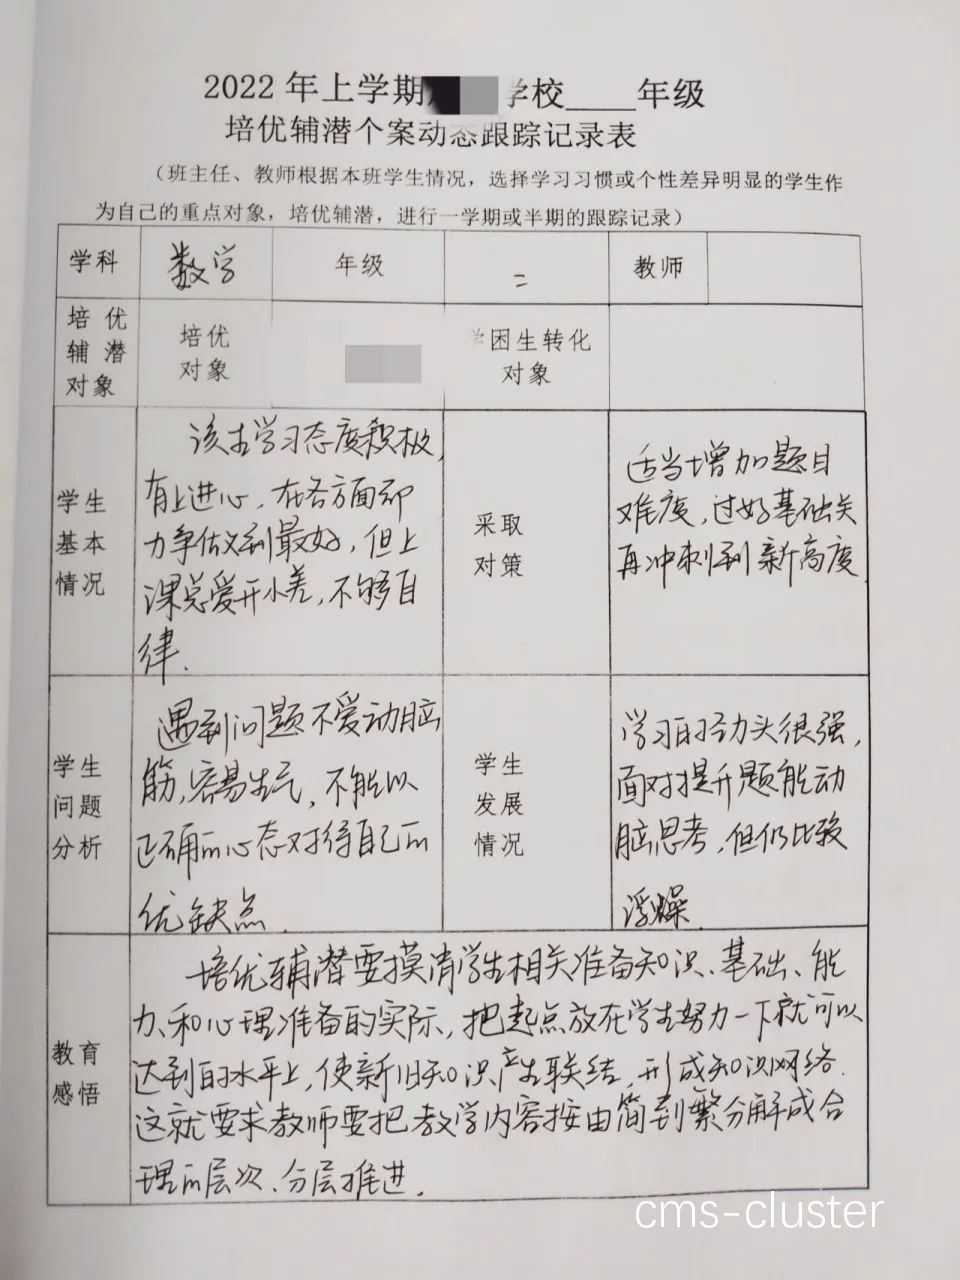 2022年上学期 学校____年级
培优辅潜个案动态跟踪记录表
（班主任、教师根据本班学生情况，选择学习习惯或个性差异明显的学生作
为自己的重点对象，培优辅潜，进行一学期或半期的跟踪记录）
学科 数学 年级 二 教师
培优
辅潜
对象
培优
对象
学困生转化
对象
学生
基本
情况
该生学习态度积极，
有上进心，在各方面都
力争做到最好，但上
课总爱开小差，不够自
律.
采取
对策
适当增加题目
难度，过好基础关
再冲刺到新高度
学生
问题
分析
遇到问题不爱动脑
筋，容易生气，不能以
正确的心态对待自己的
优缺点.
学生
发展
情况
学习的劲头很强，
面对提升题能动
脑思考，但仍比较
浮燥.
教育
感悟
培优辅潜要摸清学生相关准备知识、基础、能
力、和心理准备的实际，把起点放在学生努力一下就可以
达到的水平上，使新旧知识产生联结，形成知识网络.
这就要求教师要把教学内容按由简到繁分解成合
理的层次、分层推进.
cms-cluster